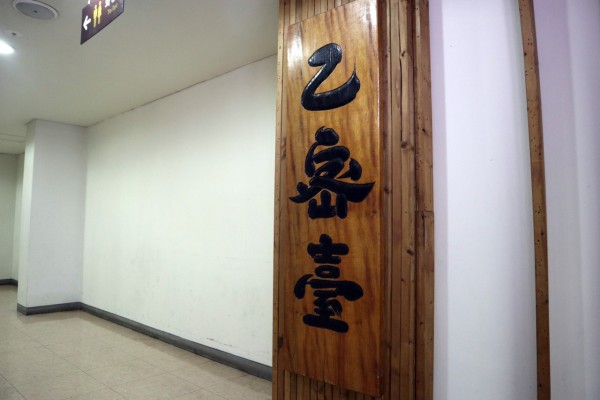 乙密臺